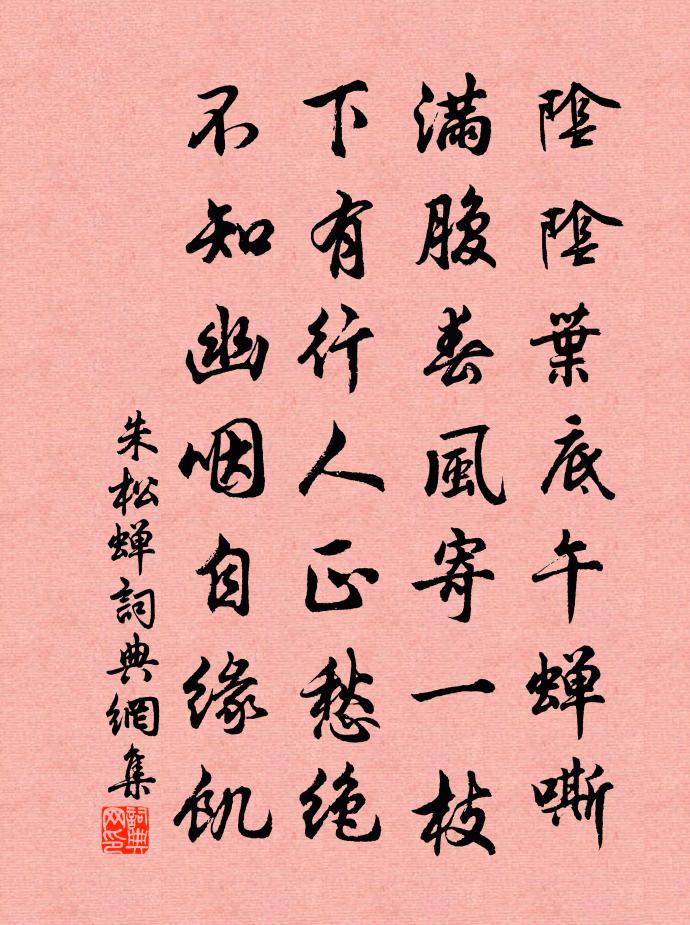 陰陰葉底午蝉嘶
滿腹春風寄一枝
下有行人正愁絶
不知幽咽自緣飢
朱松蝉詞典網集
詞典网印